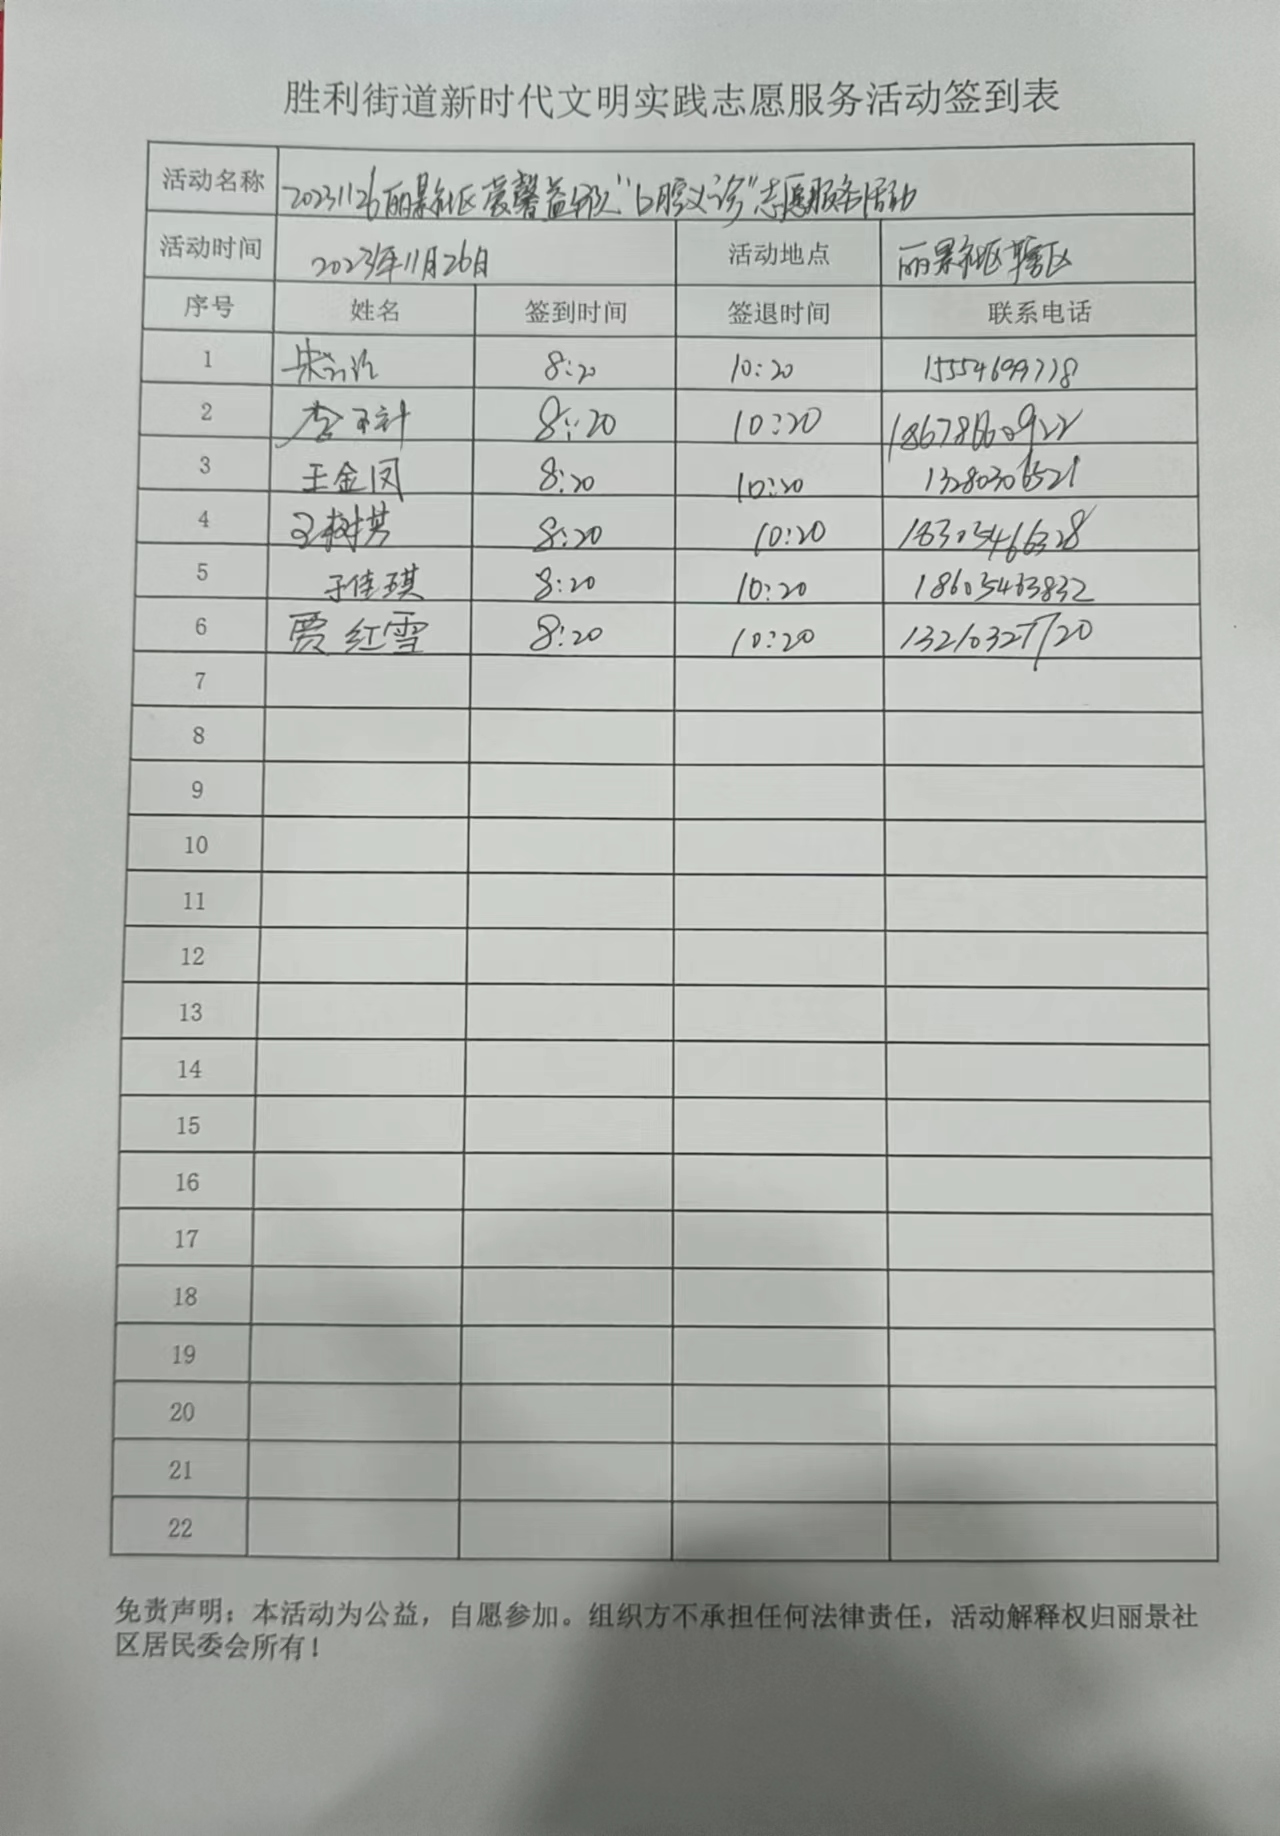 胜利街道新时代文明实践志愿服务活动签到表
活动名称 20231126丽景社区爱馨益家"口腔义诊"志愿服务活动
活动时间 2023年11月26日 活动地点 丽景社区辖区
序号 姓名 签到时间 签退时间 联系电话
1 8:20 10:20
2 8:20 10:20
3 王金凤 8:20 10:20
4 王树芳 8:20 10:20 18305466328
5 于佳琪 8:20 10:20 18605463832
6 贾红雪 8:20 10:20 13210327720
7
8
9
10
11
12
13
14
15
16
17
18
19
20
21
22
免责声明：本活动为公益，自愿参加。组织方不承担任何法律责任，活动解释权归丽景社
区居民委会所有！